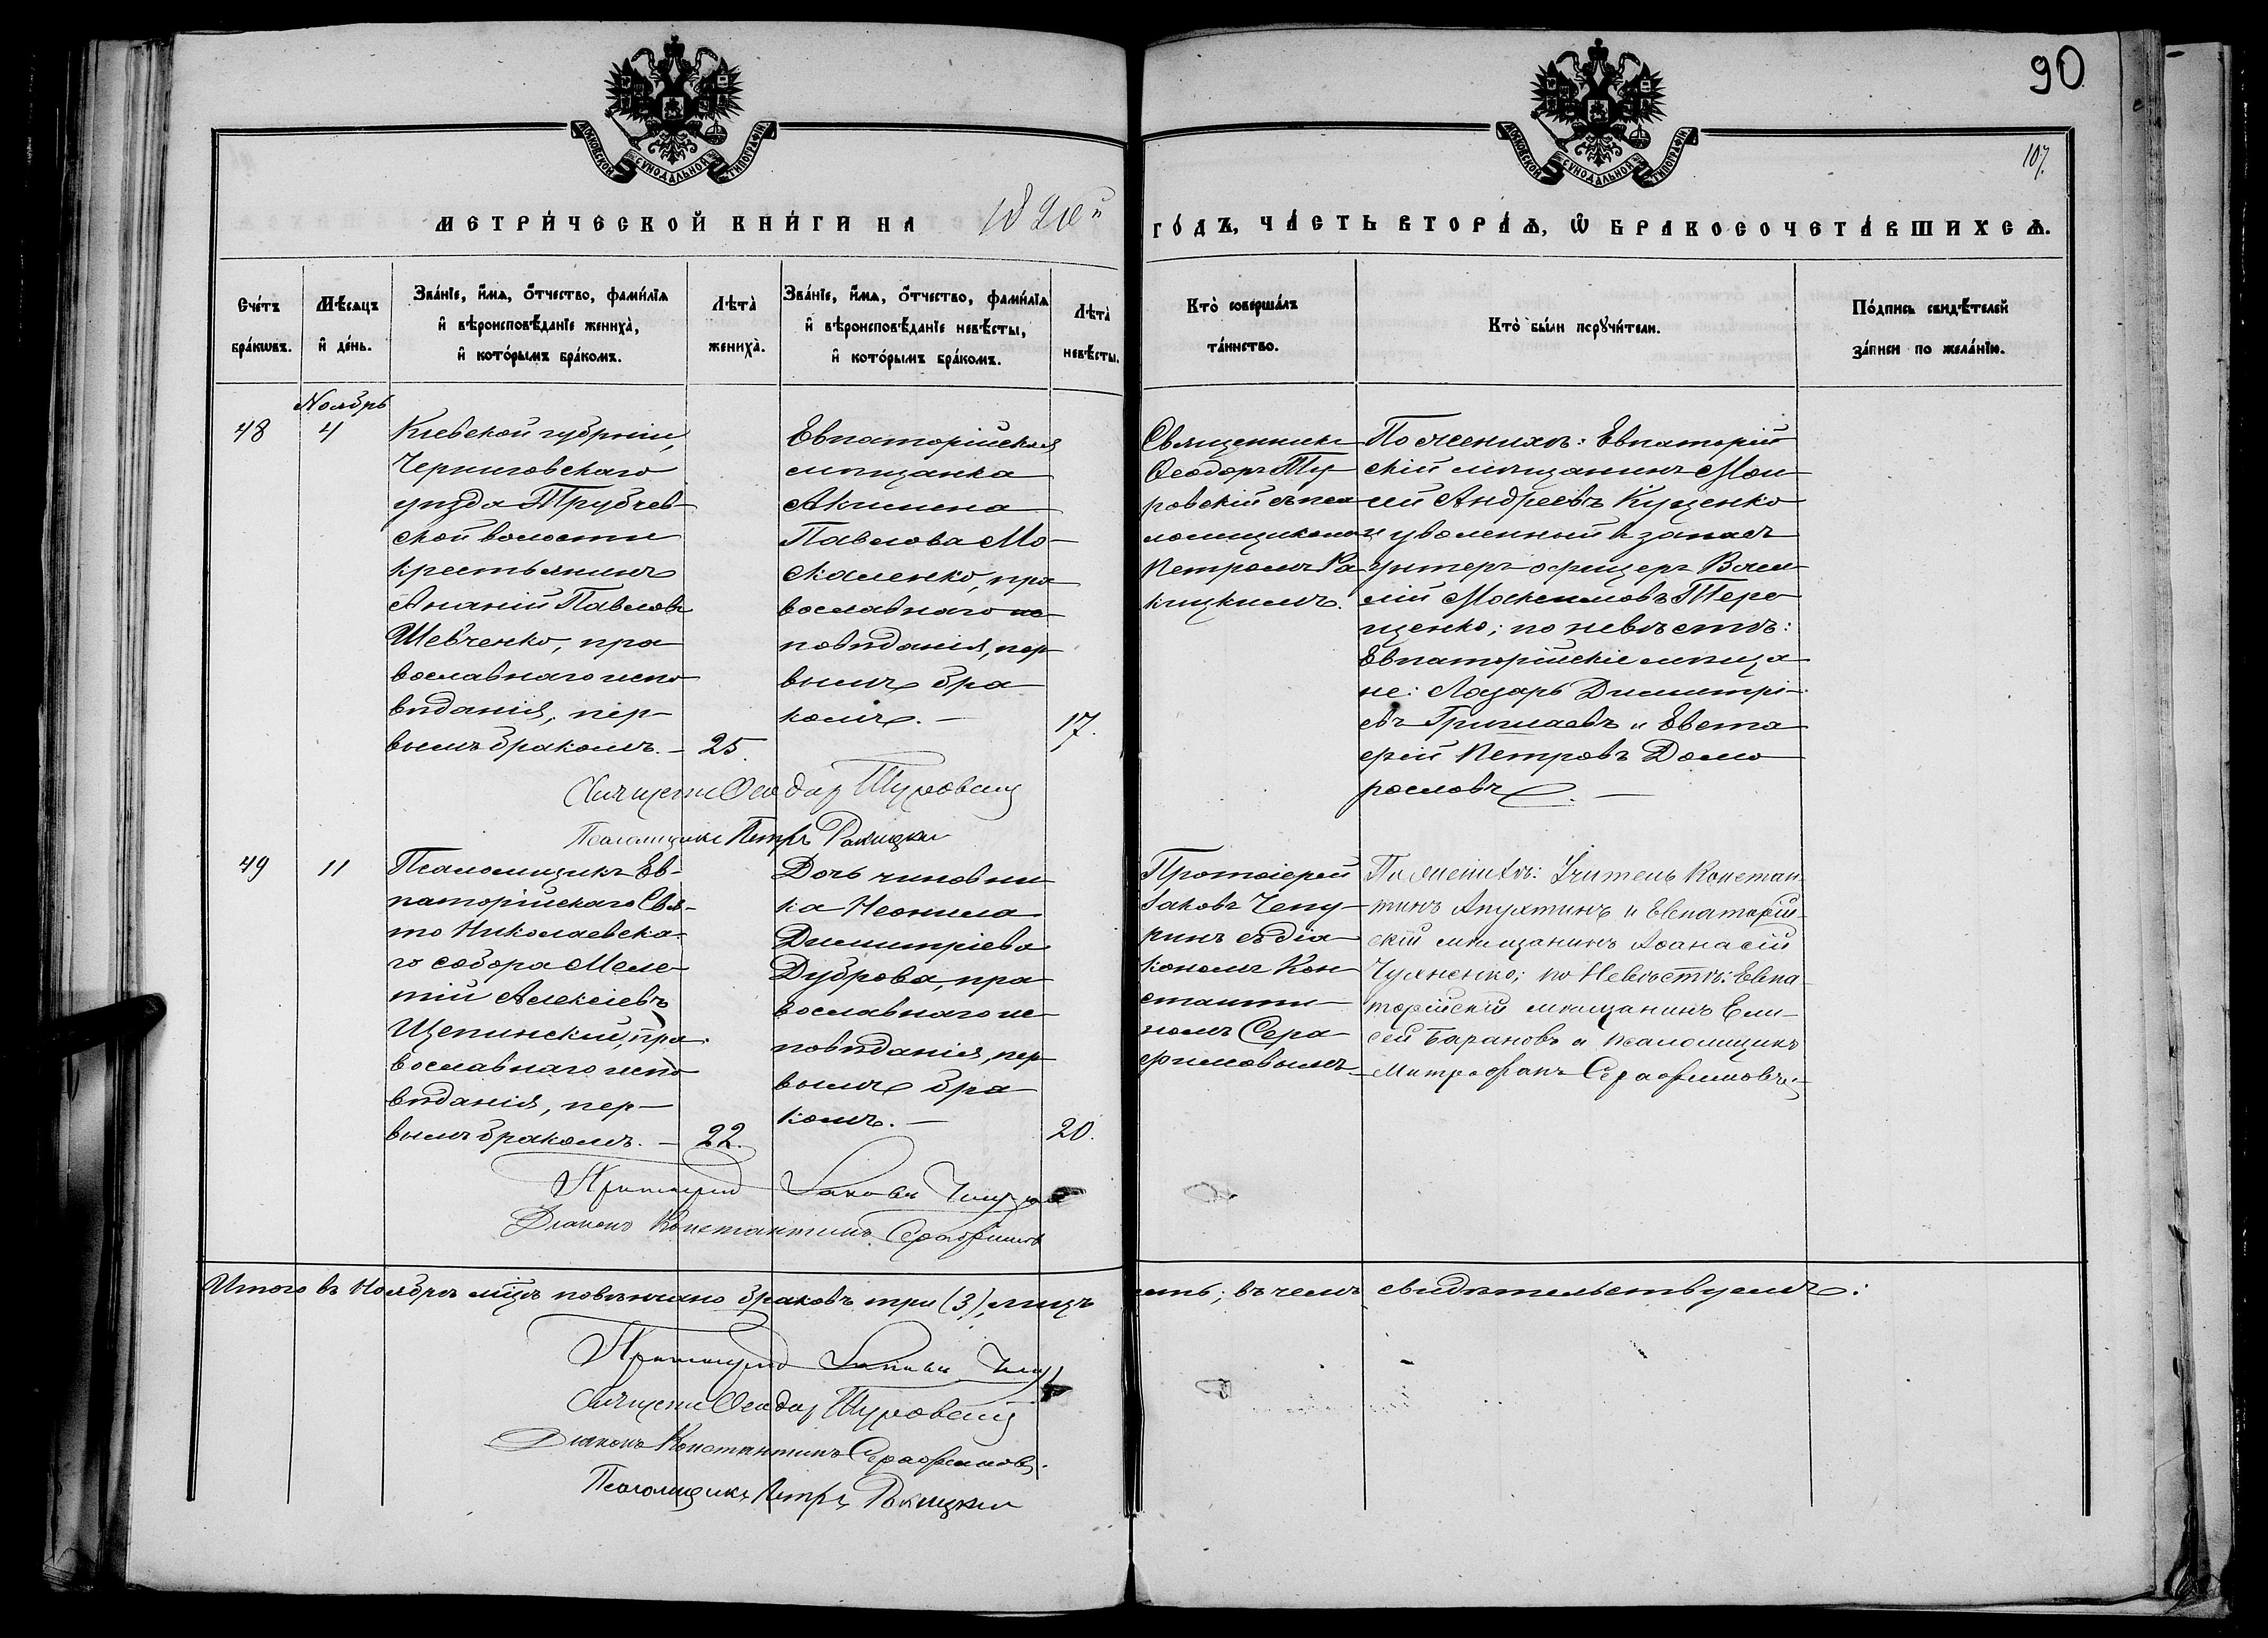 90
107.
МОСКОВСКОЙ СУНОДАЛЬНОЙ ТИПОГРАФІИ
МОСКОВСКОЙ СУНОДАЛЬНОЙ ТИПОГРАФІИ
МЕТРИ́ЧЕСКОЙ КНИ́ГИ НА
ГО́ДЪ, ЧА́СТЬ ВТОРА́Ѧ, Ѽ БРАКОСОЧЕТА́ВШИХСѦ.
Сче́тъ
бра́кωвъ.
Мѣ́сяцъ
и҆ де́нь.
Зва́нїе, и҆́мѧ, ѻ҆́тчество, фами́лїѧ
и҆ вѣроисповѣ́данїе жениха̀,
и҆ кото́рымъ бра́комъ.
Лѣта̀
жениха̀.
Зва́нїе, и҆́мѧ, ѻ҆́тчество, фами́лїѧ
и҆ вѣроисповѣ́данїе невѣ́сты,
и҆ кото́рымъ бра́комъ.
Лѣта̀
невѣ́сты.
Кто̀ соверша́лъ
та́инство.
Кто̀ бы́ли порꙋчи́тели.
По́дпись свидѣ́телей
за́писи по жела́нїю.
Ноябрь
48
4
Кіевской губерніи,
Черниговскаго
уѣзда Трубчев-
ской волости
крестьянинъ
Ананій Павловъ
Шевченко, пра
вославнаго испо
вѣданія, пер-
вымъ бракомъ. –
25.
Евпаторійская
мѣщанка
Акилина
Павлова Мо-
скаленко, пра
вославнаго ис
повѣданія, пер-
вымъ бра
комъ. –
17.
Священникъ
Ѳеодоръ Ту-
ровскій съ пса
ломщикомъ
Петромъ Ра-
кицкимъ.
По женихѣ: Евпаторій
скій мѣщанинъ Мои-
сей Андреевъ Куценко
и уволенный в запасъ
унтеръ-офицеръ Васи-
лій Максимовъ Тере
щенко; по невѣстѣ:
Евпаторійскіе мѣща-
не: Лазарь Димитрі-
евъ Гримаевъ и Евста
фій Петровъ Домо
рословъ. –
Священникъ Ѳеодоръ Туровскій
Псаломщикъ Петръ Ракицкій
49
11
Псаломщикъ Ев-
паторійскаго Свя-
то Николаевска-
го собора Меле-
тій Алексіевъ
Щепинскій, пра-
вославнаго испо
вѣданія, пер-
вымъ бракомъ. –
22.
Дочь чиновни-
ка Неонила
Димитріева
Дуброва, пра
вославнаго ис-
повѣданія, пер-
вымъ бра
комъ. –
20.
Протоіерей
Іаковъ Чепу-
ринъ съ діа-
кономъ Кон-
станти-
номъ Сера-
фимовымъ
По женихѣ: Учитель Констан-
тинъ Апухтинъ и Евпаторій-
скій мѣщанинъ Аѳанасій
Чухненко; по Невѣстѣ: Евпа-
торійскій мѣщанинъ Ели-
сей Барановъ и псаломщикъ
Митрофанъ Серафимовъ.
Протоіерей Іаковъ Чепуринъ
Діаконъ Константинъ Серафимовъ
Итого въ Ноябрѣ мѣсяцѣ повѣнчано браковъ три (3), лицъ
шесть; въ чемъ свидѣтельствуемъ:
Протоіерей Іаковъ Чепуринъ
Священникъ Ѳеодоръ Туровскій
Діаконъ Константинъ Серафимовъ.
Псаломщикъ Петръ Ракицкій